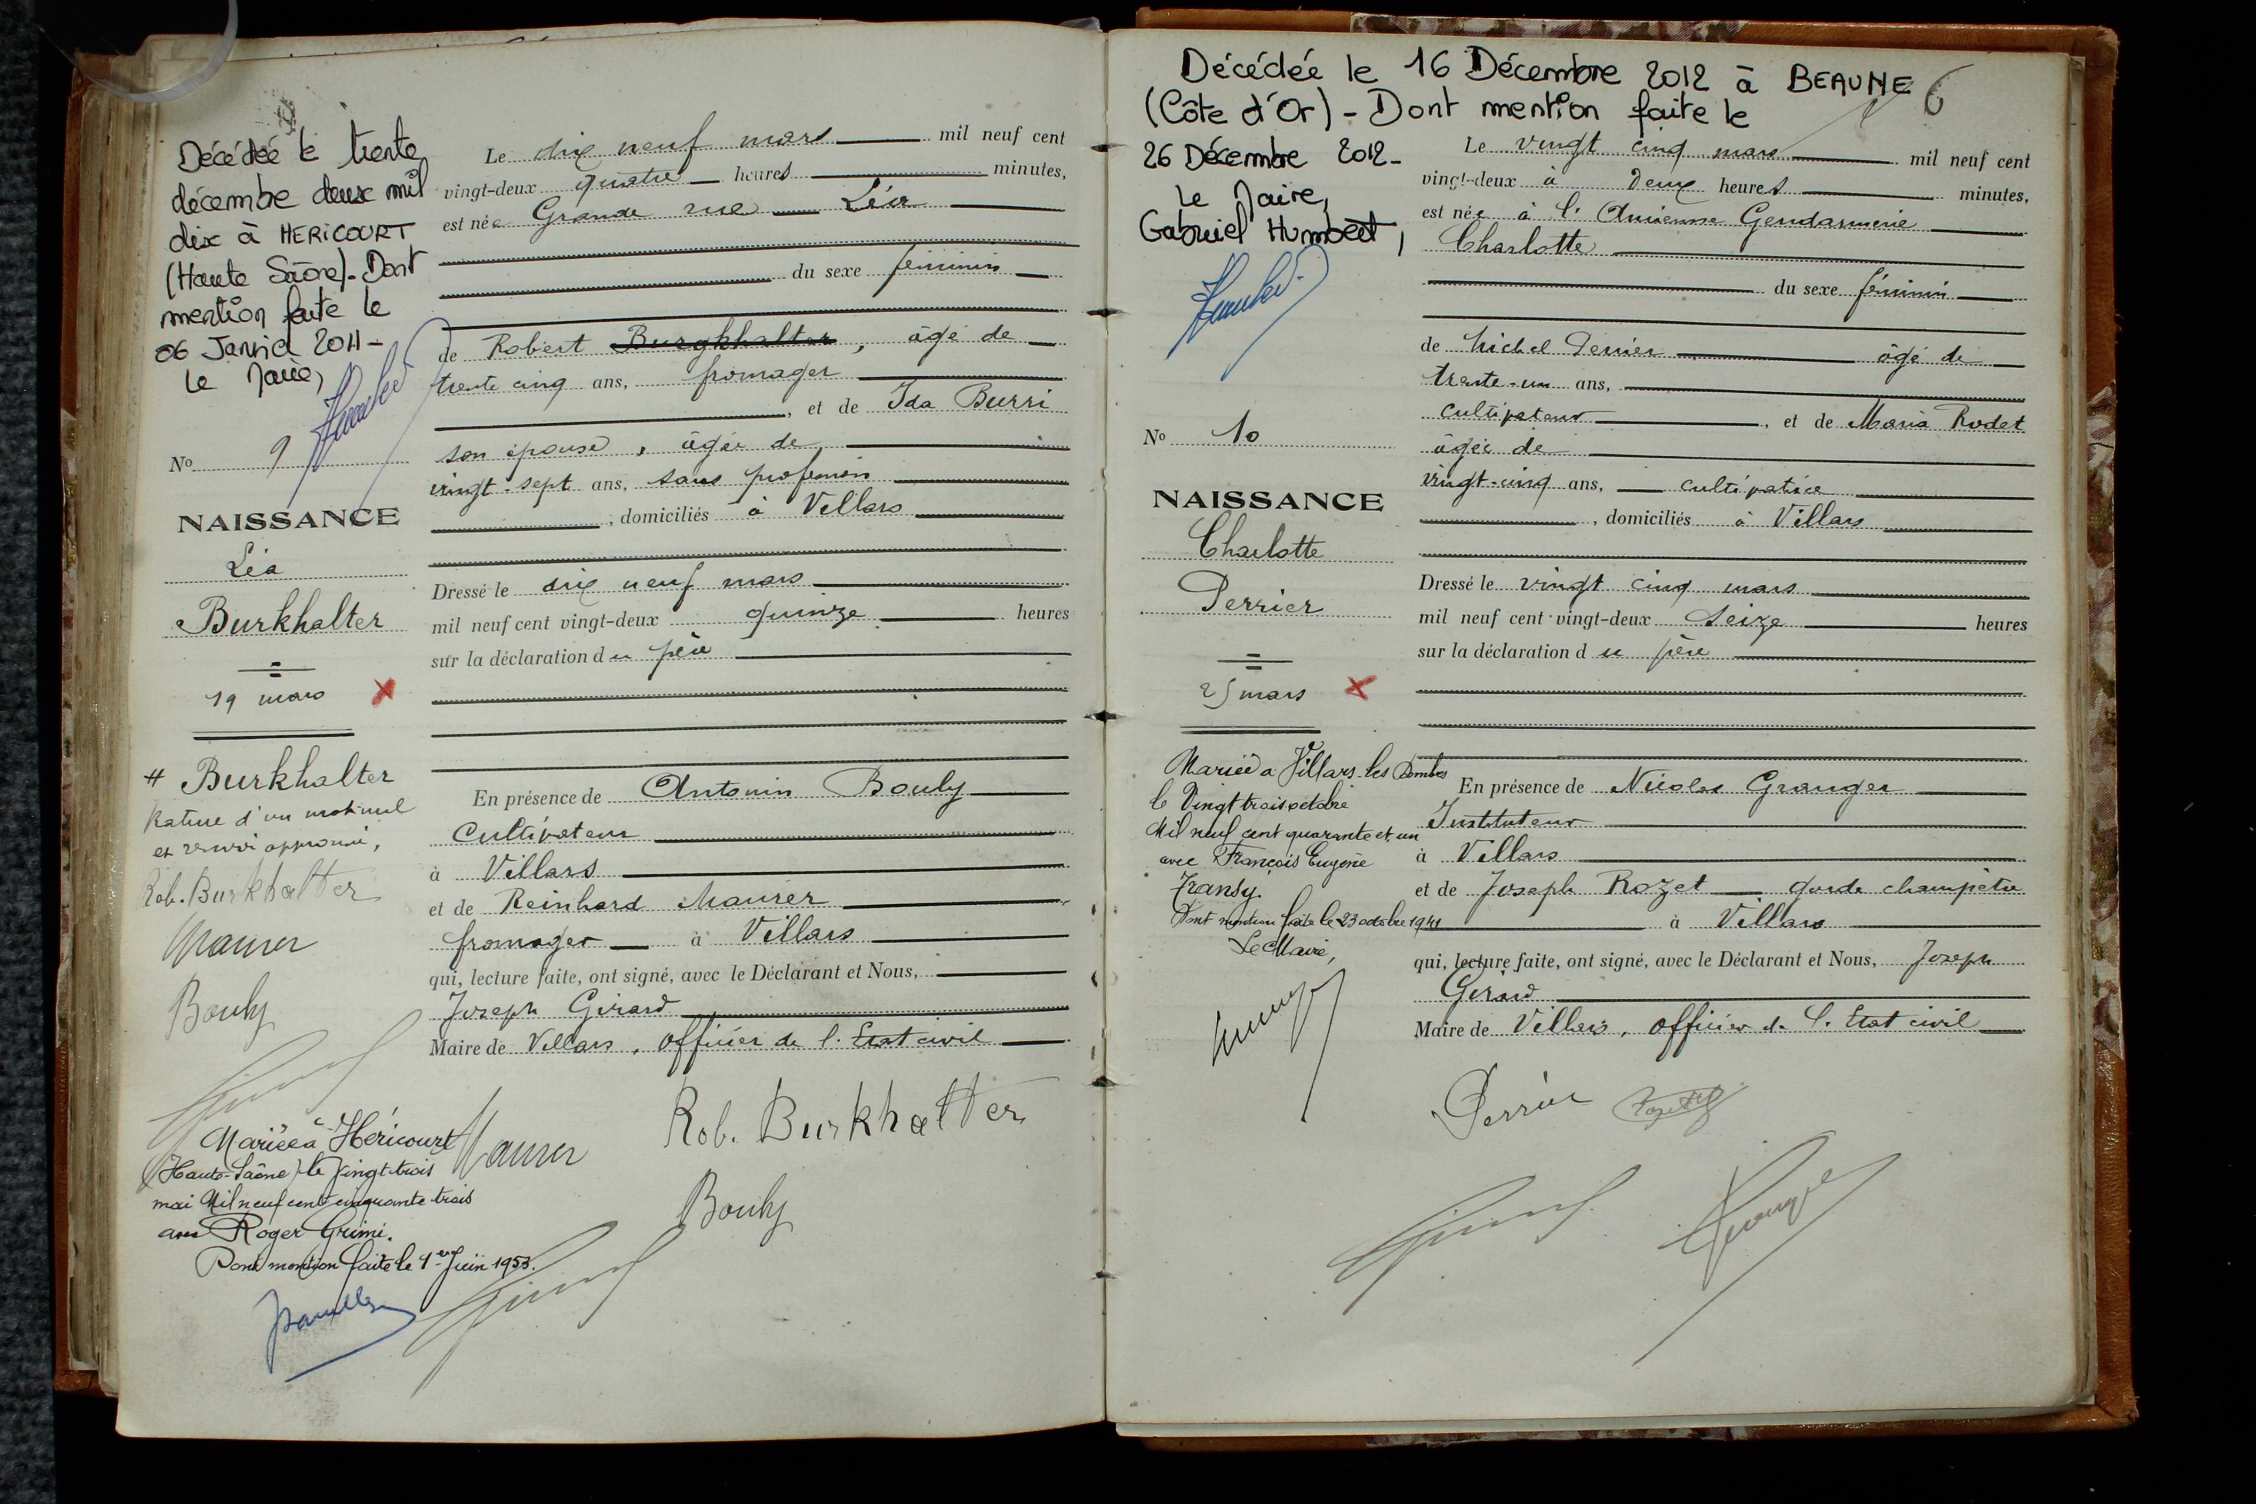 Décédée le trente
décembre deux mil
dix à HERICOURT
(Haute Saône)_Dont
mention faite le
06 Janvier 2011_
Le Maire,
No 9
NAISSANCE
Léa
Burkhalter
19 mars
# Burkhalter
Rature d'un mot nul
et renvoi approuvé,
Rob. Burkhalter
Maurer
Bouly
Mariée à Héricourt
(Haute-Saône) le vingt-trois
mai Mil neuf cent cinquante trois
avec Roger Grimi.
Dont mention faite le 1er Juin 1953.
Le dix neuf mars mil neuf cent
vingt-deux quatre heures minutes,
est née Grande rue Léa
du sexe féminin
de Robert Burgkhalter, âgé de
trente cinq ans, fromager
, et de Ida Burri
son épouse, âgée de
vingt-sept ans, sans profession
, domiciliés à Villars
Dressé le dix neuf mars
mil neuf cent vingt-deux quinze heures
sur la déclaration du père
En présence de Antonin Bouly
Cultivateur
à Villars
et de Reinhard Maurer
fromager à Villars
qui, lecture faite, ont signé, avec le Déclarant et Nous,
Joseph Girard
Maire de Villars, officier de l'Etat civil
Rob. Burkhalter
Maurer
Bouly
Décédée le 16 Décembre 2012 à BEAUNE
(Côte d'Or)_Dont mention faite le
26 Décembre 2012_
Le Maire,
Gabriel Humbert,
6
No 10
NAISSANCE
Charlotte
Perrier
25 mars
Mariée à Villars-les Dombes
le Vingt trois octobre
Mil neuf cent quarante et un
avec François Eugène
Transy.
Dont mention faite le 23 octobre 1941
Le Maire,
Le vingt cinq mars mil neuf cent
vingt-deux à deux heures minutes,
est née à l'Ancienne Gendarmerie
Charlotte
du sexe féminin
de Michel Perrier âgé de
trente-un ans,
cultivateur, et de Maria Rodet
âgée de
vingt-cinq ans, cultivatrice
, domiciliés à Villars
Dressé le vingt cinq mars
mil neuf cent vingt-deux seize heures
sur la déclaration du père
En présence de Nicolas Granger
Instituteur
à Villars
et de Joseph Rozet garde champêtre
à Villars
qui, lecture faite, ont signé, avec le Déclarant et Nous, Joseph
Girard
Maire de Villars, officier de l'Etat civil
Perrier